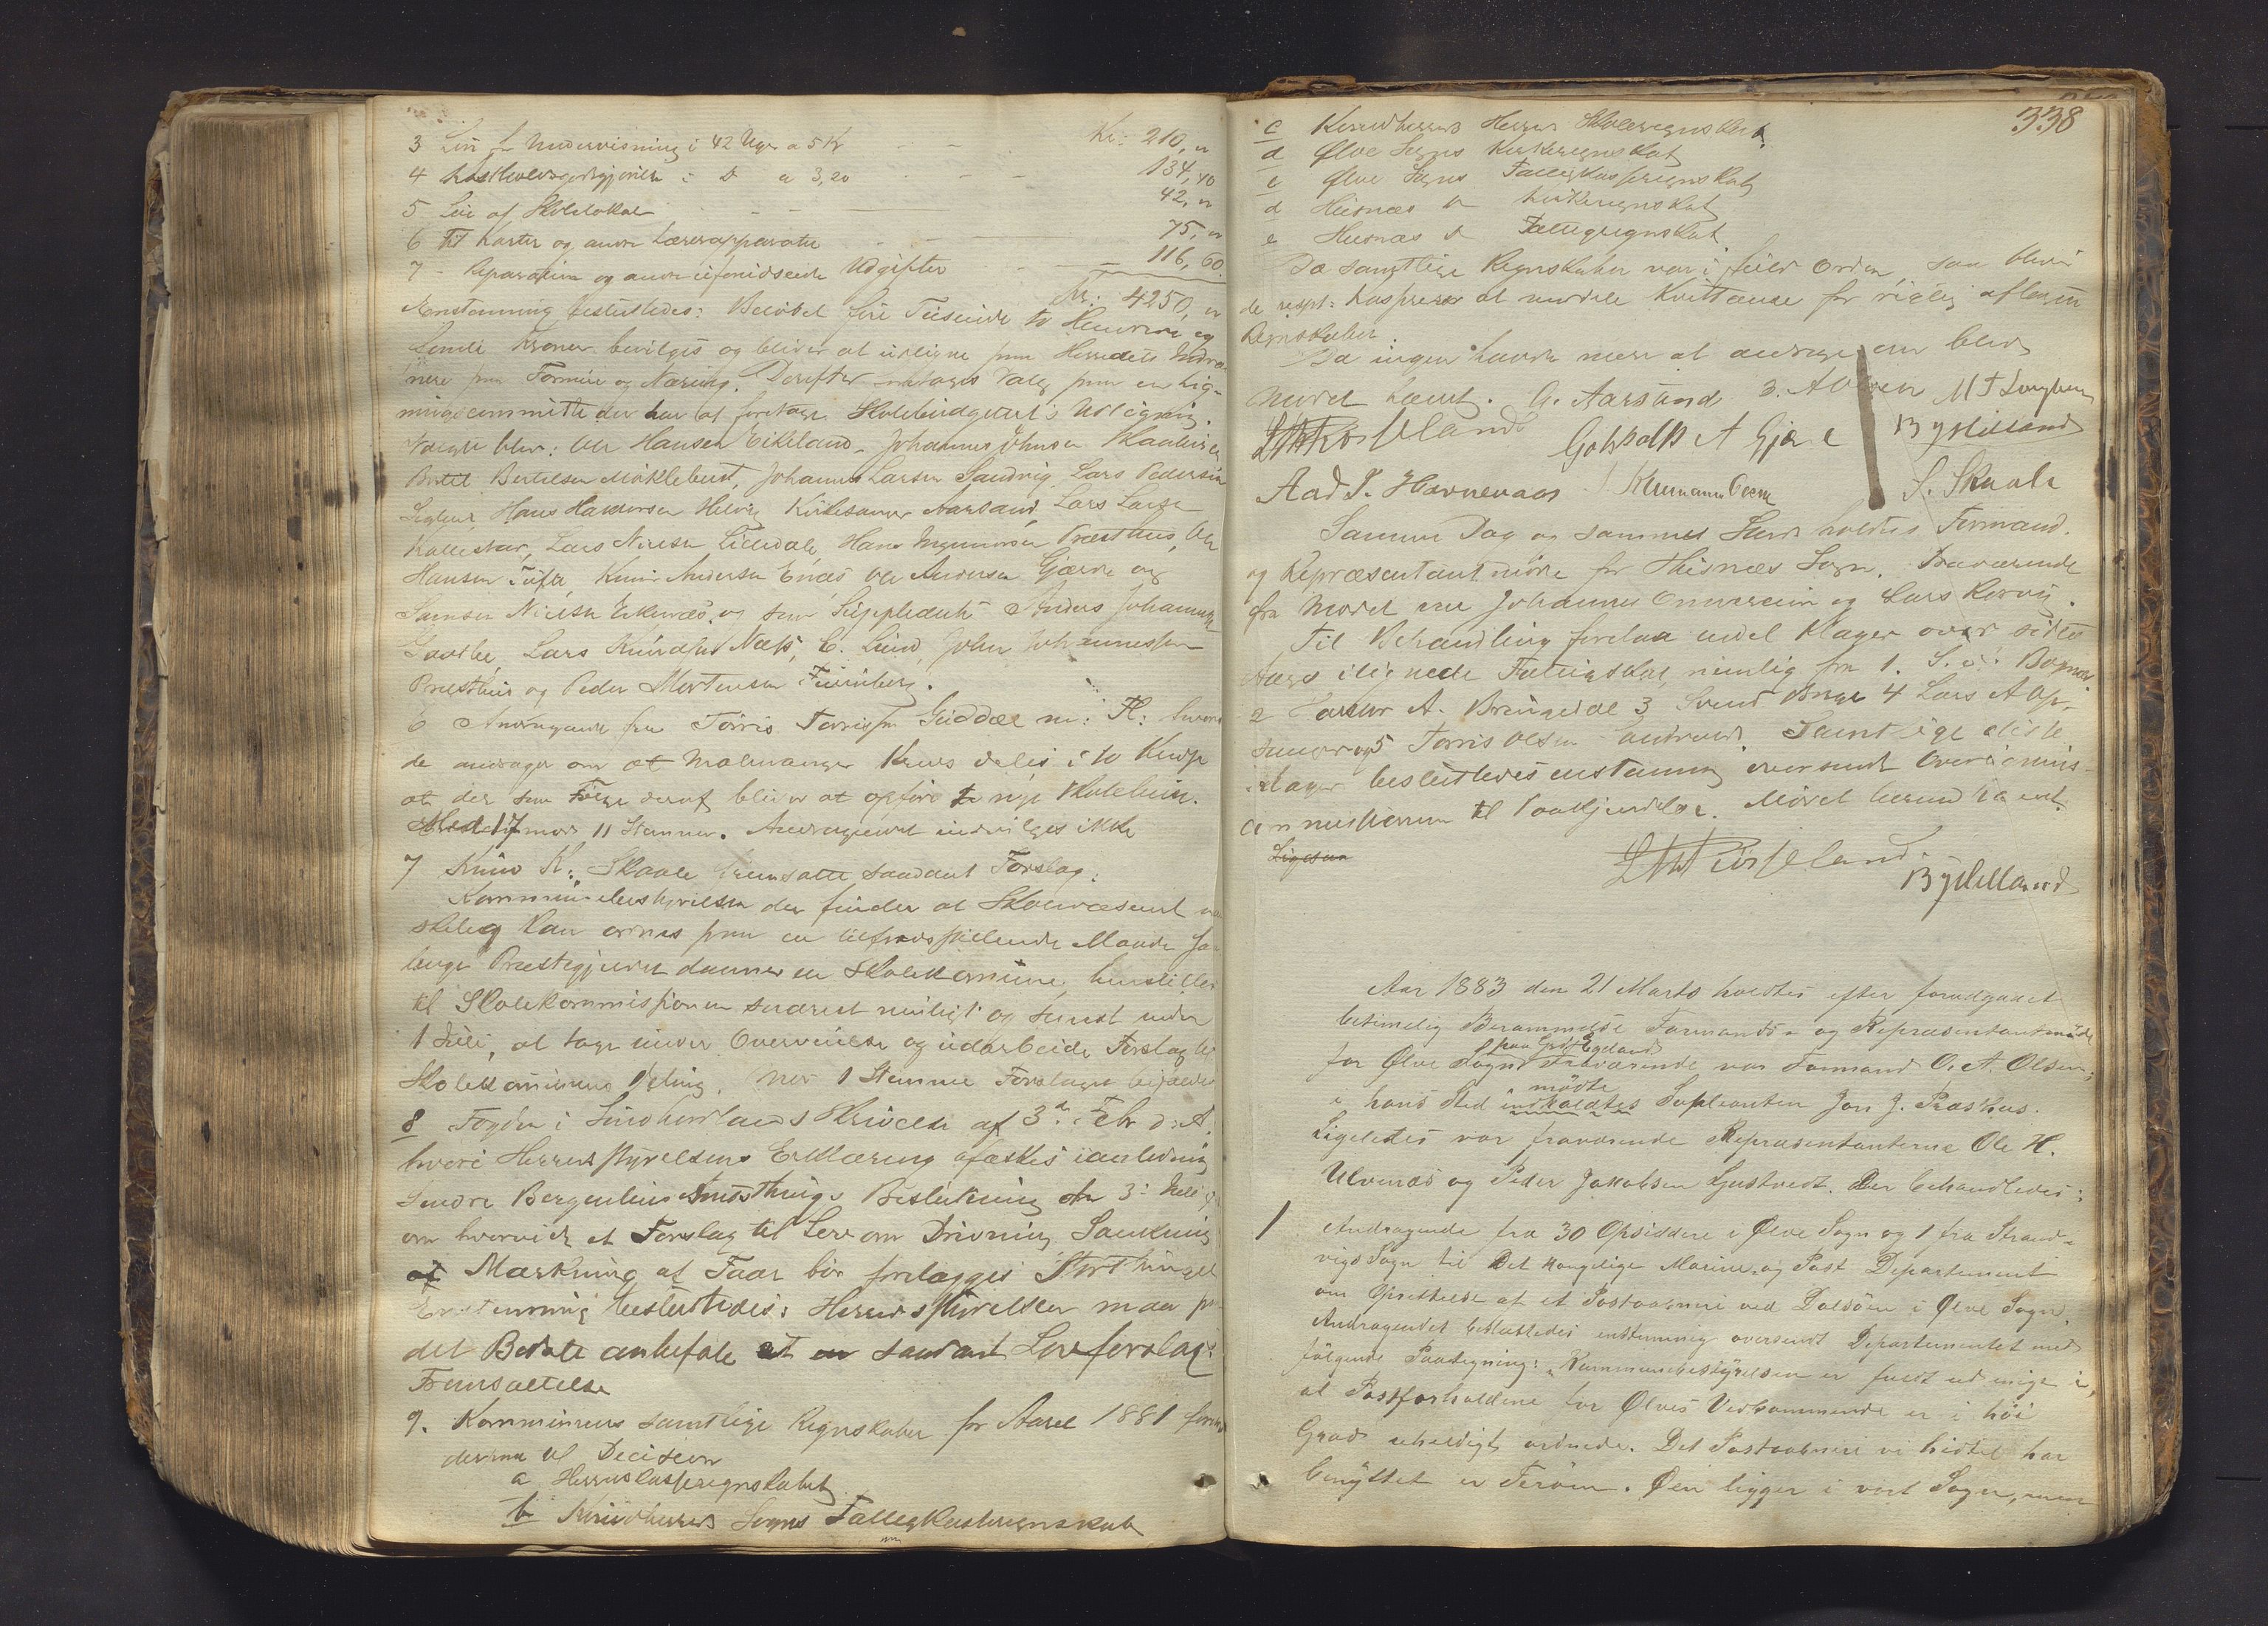 3 Løn for Undervisning i 42 Uger a 5 Kr Kr: 210, "
4 Kostholdsgodtgjørelse i D a 3,20 134,40
5 Leie af Skolelokale 42, "
6 Til Karter og andre Læreapparater 75, "
7 - Reparation og andre uforudseede Udgifter 116,60
Kr: 4250, "
Enstemmig besluttedes: Beløbet fire Tusinde to Hundrede og
femti Kroner bevilges og bliver at udligne paa Herredets Indvaa-
nere paa Formue og Næring. Derefter foretoges Valg paa en Lig-
ningscommitte der har at foretage Skolebudgettets Udligning.
Valgte blev: Ole Hansen Eikeland, Johannes Johnsen
Bertel Bertelsen Møklebust, Johannes Larsen Sandvig, Lars Pedersen
Hans Haldorsen Kirkesanger Aarsand, Lars Larsen
Lars Nielsen Lilledale, Hans Præsthus, Ole
Hansen Tufta, Knud Andersen Enæs Ole Andersen Gjærde og
Samson Nielsen og som Suppleanter Anders Johannessen
Lars Knudsen Næss, C. Lund, John Johannessen
Præsthus og Peder Mortensen
6 Andragende fra Torris Torrissen Guddal m: Fl: hvori
de andrager om at Malmanger Kreds deles i to Kredse
at der som Følge deraf bliver at opføre to nye Skolehuse.
Med 17 mod 11 Stemmer. Andragendet indvilges ikke
7 Knud K: Skaale fremsatte saadant Forslag:
Kommunebestyrelsen der finder at Skolevæsenet
kan ordnes paa en tilfredsstillende Maade saa-
længe Præstegjeldet danner en Skolekommune, henstilles
til Skolekommissionen snarest muligt og senest inden
1 Juli, at tage under Overveielse og udarbeide Forslag til
Skolekommunens Deling. Mod 1 Stemme Forslaget bifaldes
8 Fogden i Søndhordlands Skrivelse af 3de Febr d: A.
hvori Herredsstyrelsens Erklæring afæskes i anledning
Søndre Bergenhus Amtsthings Beslutning 3: Juli
om hvorvidt et Forslag til Lov om Drivning Sankning
af Mærkning af Faar bør forelægges Storthinget
Enstemmig besluttedes: Herredsstyrelsen maa paa
det Bedste anbefale at en saadant Lovforslag:
Fremsættelse
9. Kommunens samtlige Regnskaber for Aaret 1881 fore-
dernu til Decision
a Herredskasseregnskabet
b Kvindherreds Sogns Fattigkasseregnskab
338
c Kvindherreds Herreds Skoleregnskab
d Ølve Sogns Kirkeregnskab
e Ølve Sogns Fattigkasseregnskab
d Husnæs D Kirkeregnskab
e Husnæs D Fattigregnskab
Da samtlige Regnskaber var i fuld Orden, saa blev
de respt: Kasserer at meddele Kvittance for rigtig aflagte
Regnskaber.
Da ingen havde mere at andrage om blev
Mødet hævet. A. Aarsand
Gotskalk A Gjære B Ystelland
Aad T. Havnevaas Hermann Oem S. Skaale
Samme Dag og sammes Sted holdtes Formand.
og Repræsentantmøde for Husnæs Sogn. Fraværende
fra Mødet var Johannes Omvereim og Lars Kjærvig.
Til Behandling forelaa endel Klager over sidste
Aars ilignede Fattigskat, nemlig fra 1.
2 A. Bringedal 3 Svend Berge 4 Lars A
og 5 Torris Olsen Samtlige disse
Klager besluttedes enstemmig oversendt Overlignings-
commissionen til Paakjendelse. Mødet herved hævet.
Ligesaa
B Ystelland
Aar 1883 den 21 Marts holdtes efter forudgaaet
betimelig Berammelse Formands- og Repræsentantmøde
for Ølve Sogn paa Grd. Egeland Fraværende var Formand O. A. Olsen;
i hans Sted indkaldtes mødte Supleanten Jon J. Præsthus.
Ligeledes var fraværende Repræsentanterne Ole H.
Ulvenæs og Peder Jakobsen Gustveit. Der behandledes:
1 Andragende fra 30 Opsiddere i Ølve Sogn og 1 fra Strand-
vigs Sogn til Det kongelige Marine og Post Departement
om Oprettelse af et Postaabneri ved Dalsøen i Ølve Sogn.
Andragendet besluttedes enstemmig oversendt Departementet med
følgende Paategning: "Kommunebestyrelsen er fuldt ud enige i,
at Postforholdene for Ølves Vedkommende er i høi
Grad uheldigt ordnede. Det Postaabneri vi hidtil har
benyttet er Terøen. Øen ligger i vort Sogn, men